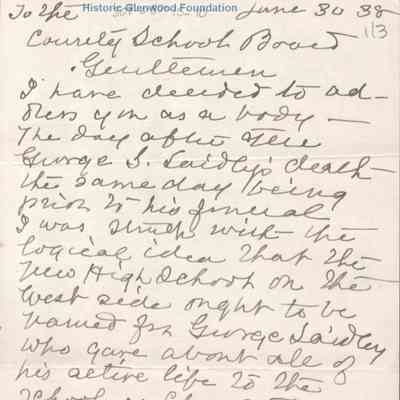 Historic Glenwood Foundation
To The June 30 38
1/3
County School Board
Gentlemen
I have decided to ad-
dress you as a body —
The day after Mr
George S. Laidley's death
the same day being
prior to his funeral
I was struck with the
logical idea that the
New High School on the
West side ought to be
named for George Laidley
who gave about all of
his active life to the